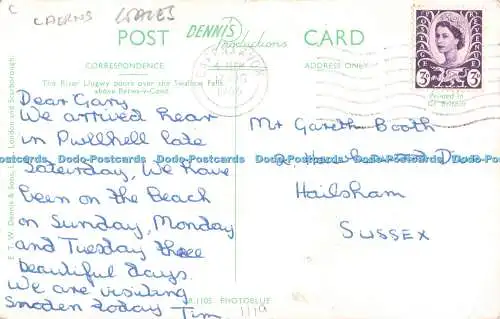 C
CAERNS WALES
POST DENNIS Productions CARD
CORRESPONDENCE ADDRESS ONLY
The River Llugwy pours over the Swallow Falls
above Betws-y-Coed
Printed in
Gt. Britain
E. T. W. Dennis & Sons, London and Scarborough.
Dear Gary
We arrived hear
in Pwllhell late
Saturday, We have
been on the Beach
on Sunday, Monday
and Tuesday three
beautiful days.
We are visiting
Snoden today Tim
Mr Gareth Booth
Hailsham
SUSSEX
3D
Dodo-Postcards Dodo-Postcards Dodo-Postcards Dodo-Postcards
1105 PHOTOBLUE